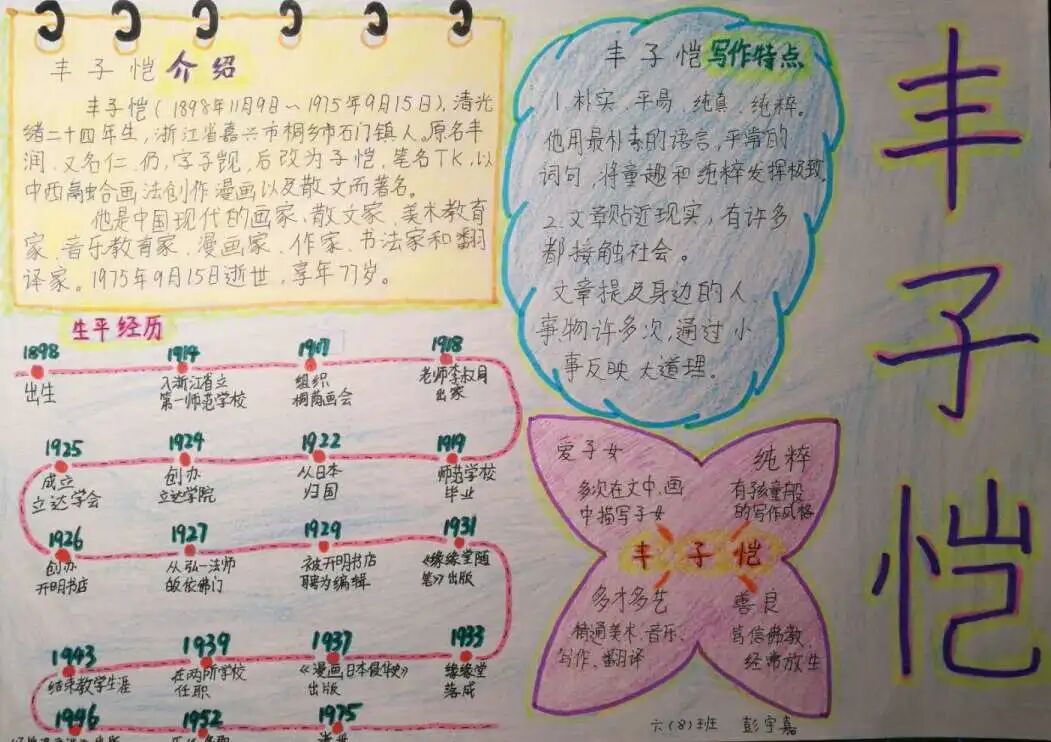 丰子恺介绍
丰子恺(1898年11月9日~1975年9月15日),清光
绪二十四年生,浙江省嘉兴市桐乡市石门镇人。原名丰
润、又名仁、仍,字子觊,后改为子恺,笔名TK,以
中西融合画法创作漫画以及散文而著名。
他是中国现代的画家、散文家、美术教育
家、音乐教育家、漫画家、作家、书法家和翻
译家。1975年9月15日逝世,享年77岁。
丰子恺写作特点
1.朴实、平易、纯真、纯粹。
他用最朴素的语言,平常的
词句,将童趣和纯粹发挥极致。
2.文章贴近现实,有许多
都接触社会。
文章提及身边的人、
事、物许多次,通过小
事反映大道理。
丰子恺
生平经历
1898
出生
1914
入浙江省立
第一师范学校
1917
组织
桐荫画会
1918
老师李叔同
出家
1925
成立
立达学会
1924
创办
立达学院
1922
从日本
归国
1919
师范学校
毕业
1926
创办
开明书店
1927
从弘一法师
皈依佛门
1929
被开明书店
聘为编辑
1931
《缘缘堂随
笔》出版
1943
结束教学生涯
1939
在两所学校
任职
1937
《漫画日本侵华史》
出版
1933
缘缘堂
落成
1946
1952
1975
爱子女
多次在文中、画
中描写子女
纯粹
有孩童般
的写作风格
丰子恺
多才多艺
精通美术、音乐、
写作、翻译
善良
笃信佛教、
经常放生
六(8)班 彭宇嘉